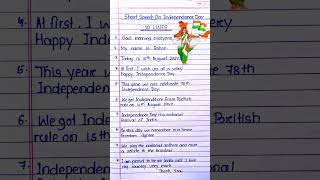 Short Speech On Independence Day
10 LINES
1. Good morning everyone.
2. My name is
3. Today is 15th August 2024.
4. At first, I wish you all a very
Happy Independence Day.
5. This year we are celebrate 78th
Independence Day.
6. We got Independence from British
rule on 15th August 1947.
7. Independence Day is a national
festival of India.
8. On this day we remember our brave
freedom fighter.
9. We sing the national anthem and
a salute to the
10. I am proud to be an Indian and I love
my country very much.
Thank You.
4. At first, I w
Happy Indepen
5. This year we
Independence
6. We got Indep
rule on 15th
7. Independenc
very
78th
British